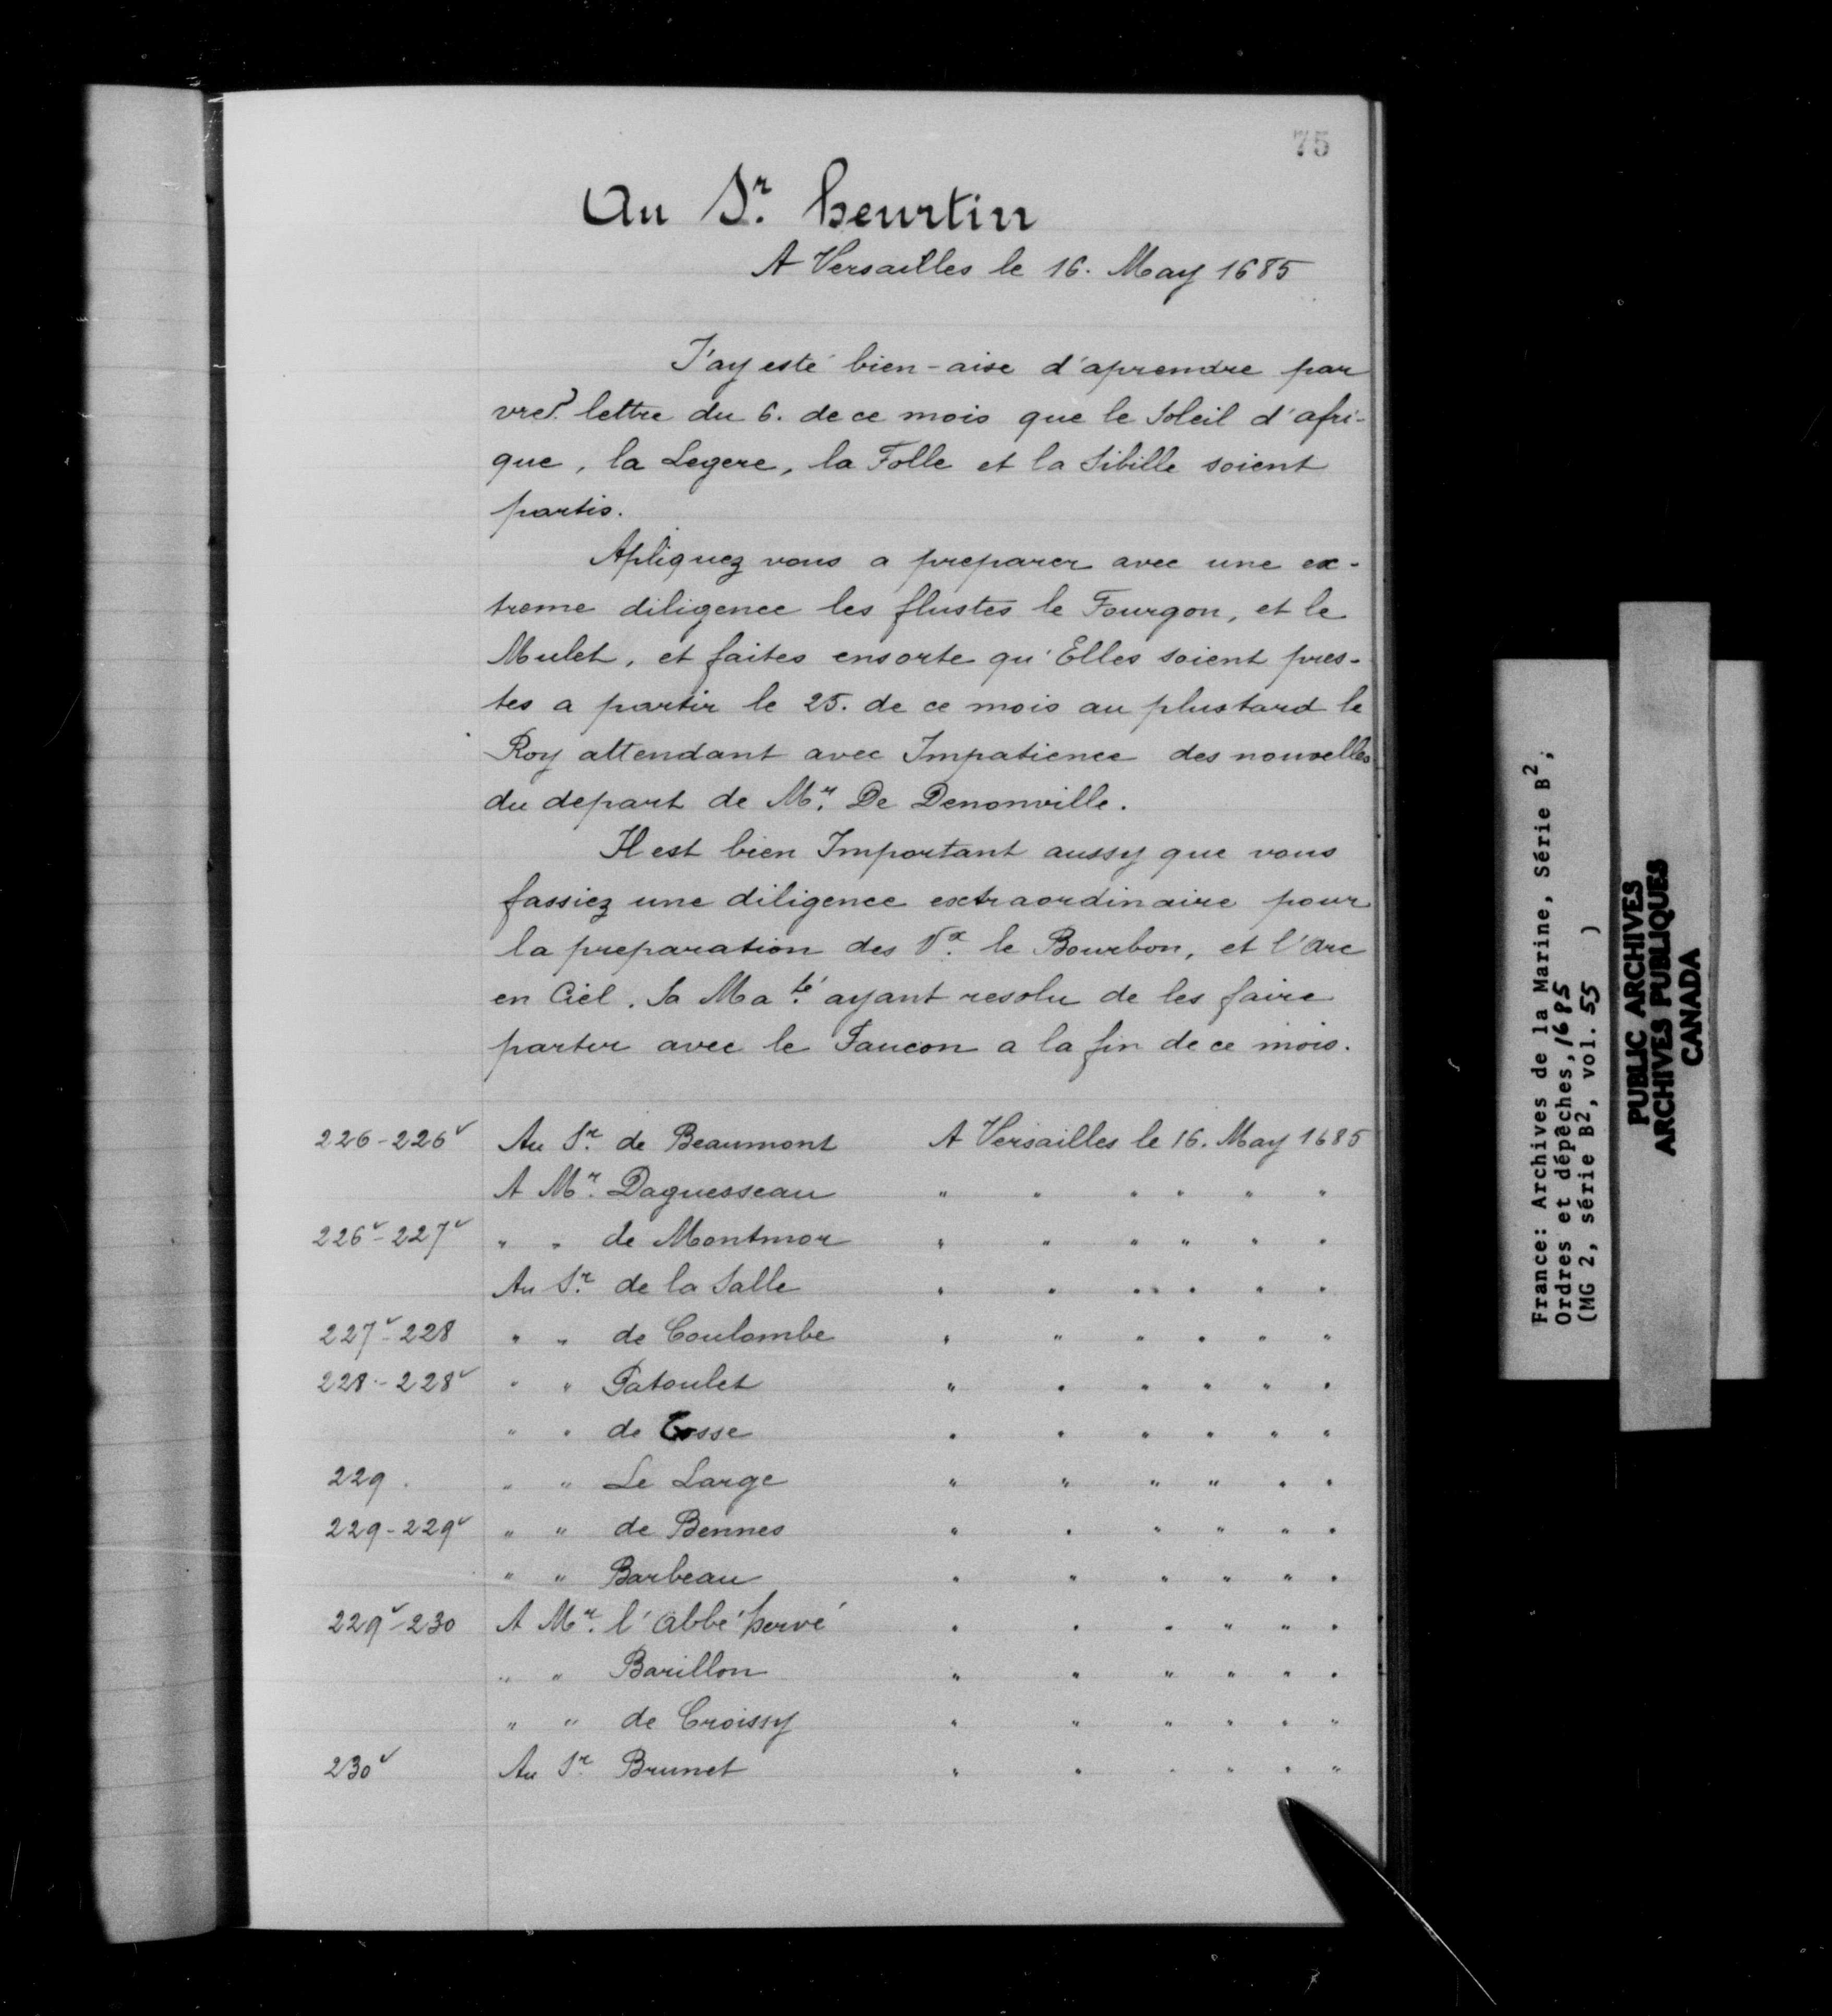 75
Au Sr. heurtin
A Versailles le 16. May 1685
J'ay esté bien-aise d'aprendre par
vre lettre du 6. de ce mois que le Soleil d'afri-
que, la Legere, la Folle et la Sibille soient
partis.
Apliquez vous a preparer avec une ex-
treme diligence les flustes le Fourgon, et le
Mulet, et faites ensorte qu'Elles soient pres-
tes a partir le 25. de ce mois au plustard le
Roy attendant avec Impatience des nouvelles
du depart de Mr. De Denonville.
Il est bien Important aussy que vous
fassiez une diligence extraordinaire pour
la preparation des Vx. le Bourbon, et l'Arc
en Ciel. Sa Maté. ayant resolu de les faire
partir avec le Faucon a la fin de ce mois.
226-226v Au Sr. de Beaumont A Versailles le 16. May 1685
A Mr. Daguesseau " " " " " "
226v-227v " " de Montmor " " " " " "
Au Sr. de la Salle " " " " " "
227v-228 " " de Coulombe " " " " " "
228-228v " " Patoulet " " " " " "
" " de Cosse " " " " " "
229. " " Le Large " " " " " "
229-229v " " de Bennes " " " " " "
" " Barbeau " " " " " "
229v-230 A Mr. l'abbé hervé " " " " " "
" " Barillon " " " " " "
" " de Croissy " " " " " "
230v Au Sr. Brunet " " " " " "
France: Archives de la Marine, Série B2,
Ordres et dépêches, 1685
(MG 2, série B2, vol. 55 )
PUBLIC ARCHIVES
ARCHIVES PUBLIQUES
CANADA